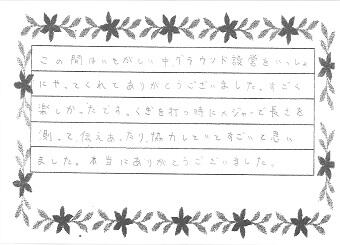 この間はいそがしい中グラウンド設営をいっしょ
にやってくれてありがとうございました。すごく
楽しかったです。くぎを打つ時にメジャーで長さを
測って伝えあったり、協力していてすごいと思い
ました。本当にありがとうございました。